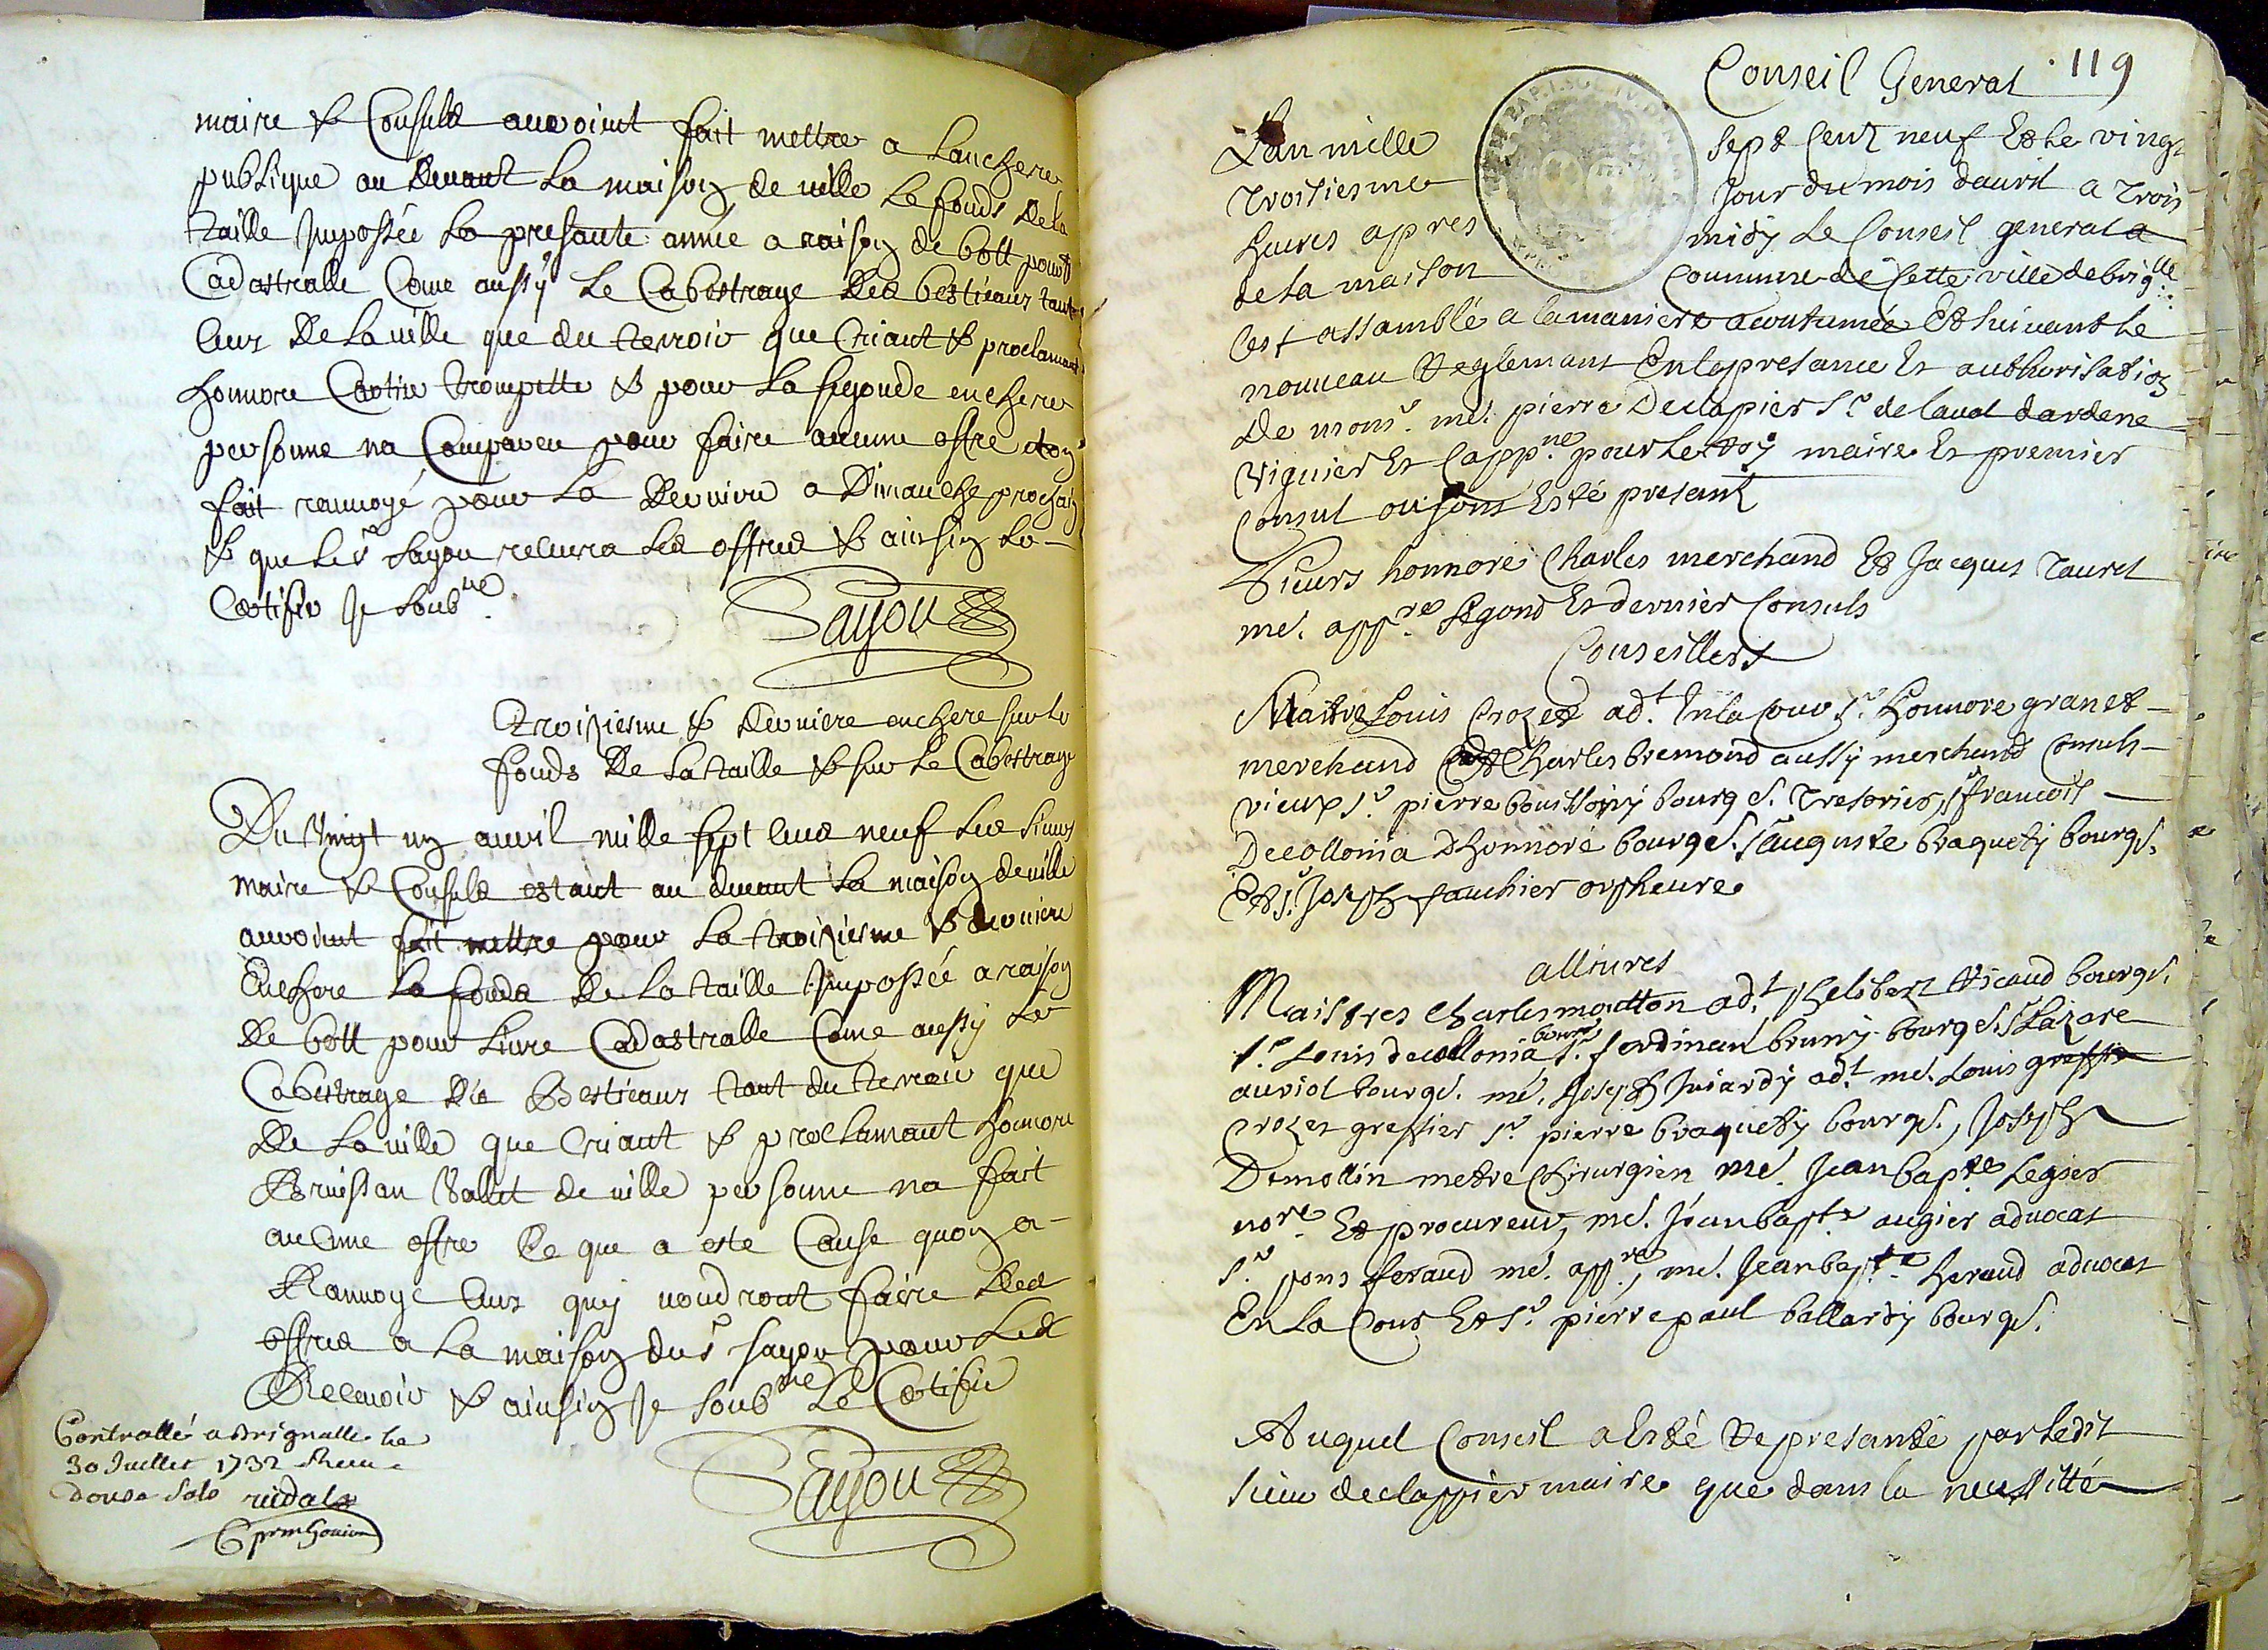 maire & Consuls auroint fait mettre a Lanchere
publique au devant La maison de ville Le fonds De la
taille Imposée La presante année a raison de 60ll pour ll
Cadastralle Come aussy Le Cabestrage Des bestieaux tant
Ceux De La ville que du terroir que Criant & proclamant
honnore trompette & pour La segonde enchere
personne na Compareu pour faire aucune offre
fait ranvoyé pour La Derniere a Dimanche prochain
& que Le sr Sayou recevra Les offres & ainsin Le
Certifie Je soubné
Sayou
Troiziesme & Derniere enchere sur Le
fonds De La taille & sur Le Cabestrage
Du Vingt un avril mille sept Cens neuf Les sieurs
maire & Consuls estant au devant La maison de ville
auroint fait mettre pour La troiziesme & derniere
Enchere Le fonds De La taille Imposée a raison
De 60ll pour Livre Cadastralle Come aussy Le
Cabestrage Des Bestieaux tant du terroir que
De La ville que Criant & proclamant honnore
Bruissan Valet de ville personne na fait
aucune offre Ce que a este Cause quon a
Ranvoyé Ceux quy voudront faire Des
offres a La maison du sr Sayou pour Les
Recevoir & ainsin Je soubné Le Certifie
Sayou
Controllé a Brignolle le
30 Juillet 1732 Receu
douse sols
Conseil General 119
Lan mille sept Cent neuf Et Le vingt
troisiesme Jour du mois davril a trois
heures apres midy Le Conseil general a
de la maison Commune de Cette ville de briglle
Cest assamblé a la maniere acoutumée Et suivant Le
nouveau Reglemant En la presance Et authorisation
De monsr me pierre Declapier sr de Laval dardene
Viguier Et Cappne pour Le Roy maire Et premier
Consul ou sont Esté presant
Sieurs honnoré Charles merchand Et Jacques Taurel
me appre segond Et dernier Consuls
Conseillers
Maitre Louis Crozet adt En la Cour sr honnore granet
merchand Et Charles bremond aussy merchand Consuls
vieux sr pierre bouissony bourgs. Tresorier, sr francois
Decollonia Dhonnoré bourgs. sr auguste braquety bourgs.
Et sr Joseph fauchier orpheure
alliures
Maistres Charles moutton adt, phelibert Ricaud bourgs.
sr Louis decollonia bourgs sr ferdinan bruny bourgs. sr Lazare
auriol bourgs. me. Joseph Iniardy adt me. Louis
Crozet greffier sr pierre braquety bourgs., Joseph
Demollin metre Chirurgien me. Jean bapte Legier
nore Et procureur, me. Jean bapte augier advocat
sr pons feraud me. appre, me. Jean bapte heraud advocat
En La Cour Et sr pierre paul ballardy bourgs.
Auquel Conseil a Esté Represanté par Ledit
sieur declappier maire que dans la necessitté